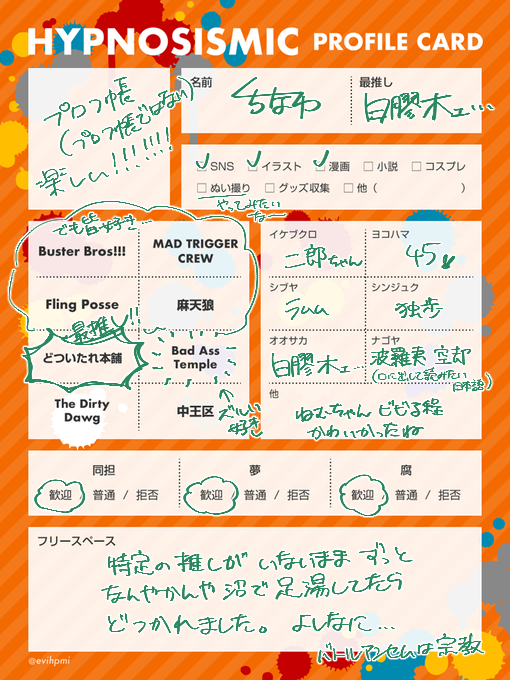 HYPNOSISMIC PROFILE CARD
プロフ帳
(プロフ帳ではない)
楽しい!!!!!!!
名前
くちなわ
最推し
白膠木ェ…
✓SNS ✓イラスト ✓漫画 □小説 □コスプレ
□ぬい撮り □グッズ収集 □他( )
やってみたいな〜
でも皆好き…
Buster Bros!!!
MAD TRIGGER CREW
Fling Posse
麻天狼
最推し!!
どついたれ本舗
Bad Ass Temple
The Dirty Dawg
中王区
↑ズルい好き
イケブクロ
二郎ちゃん
ヨコハマ
45
シブヤ
ラムム
シンジュク
独歩
オオサカ
白膠木ェ…
ナゴヤ
波羅夷 空却
(口に出して読みたい日本語)
他
ねむちゃん ビビる程
かわいかったね
同担
歓迎 / 普通 / 拒否
夢
歓迎 / 普通 / 拒否
腐
歓迎 / 普通 / 拒否
フリースペース
特定の推しがいないまま ずっと
なんやかんや沼で足湯してたら
どつかれました。よしなに…
バトルアンセムは宗教
@evihpmi